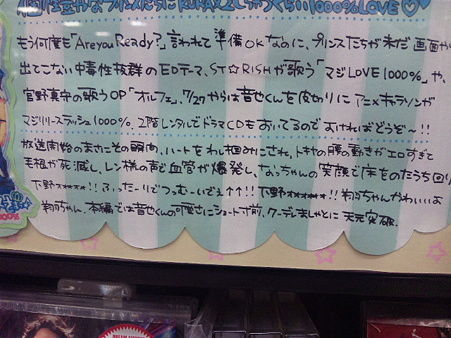 1000%LOVE♡
もう何度も「Are you Ready?」言われて準備OKなのに、プリンスたちが未だ画面から
出てこない中毒性抜群のEDテーマ、ST☆RISHが歌う「マジLOVE1000%」や、
宮野真守の歌うOP「オルフェ」、7/27からは音也くんを皮切りにアニメキャラソンが
マジリリースラッシュ1000%。2階レンタルでドラマCDもおいてるのでよければどうぞ~!!
放送開始のまさにその瞬間、ハートをわし掴みにされ、トキヤの腰の動きがエロすぎて
毛根が死滅し、レン様の声で血管が爆発し、なっちゃんの笑顔で床をのたうち回り
下野★★★★★!!ふったーりでつ、むーいでぇ↑↑!!下野★★★★!!翔ちゃんかわいいよ
翔ちゃん、本編では音也くんの可愛さにショート寸前、クーデレまさとに天元突破。